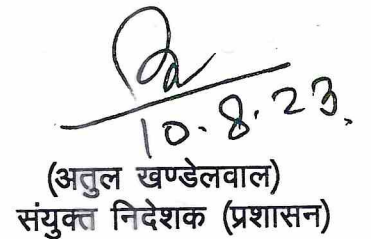 10.8.23.
(अतुल खण्डेलवाल)
संयुक्त निदेशक (प्रशासन)